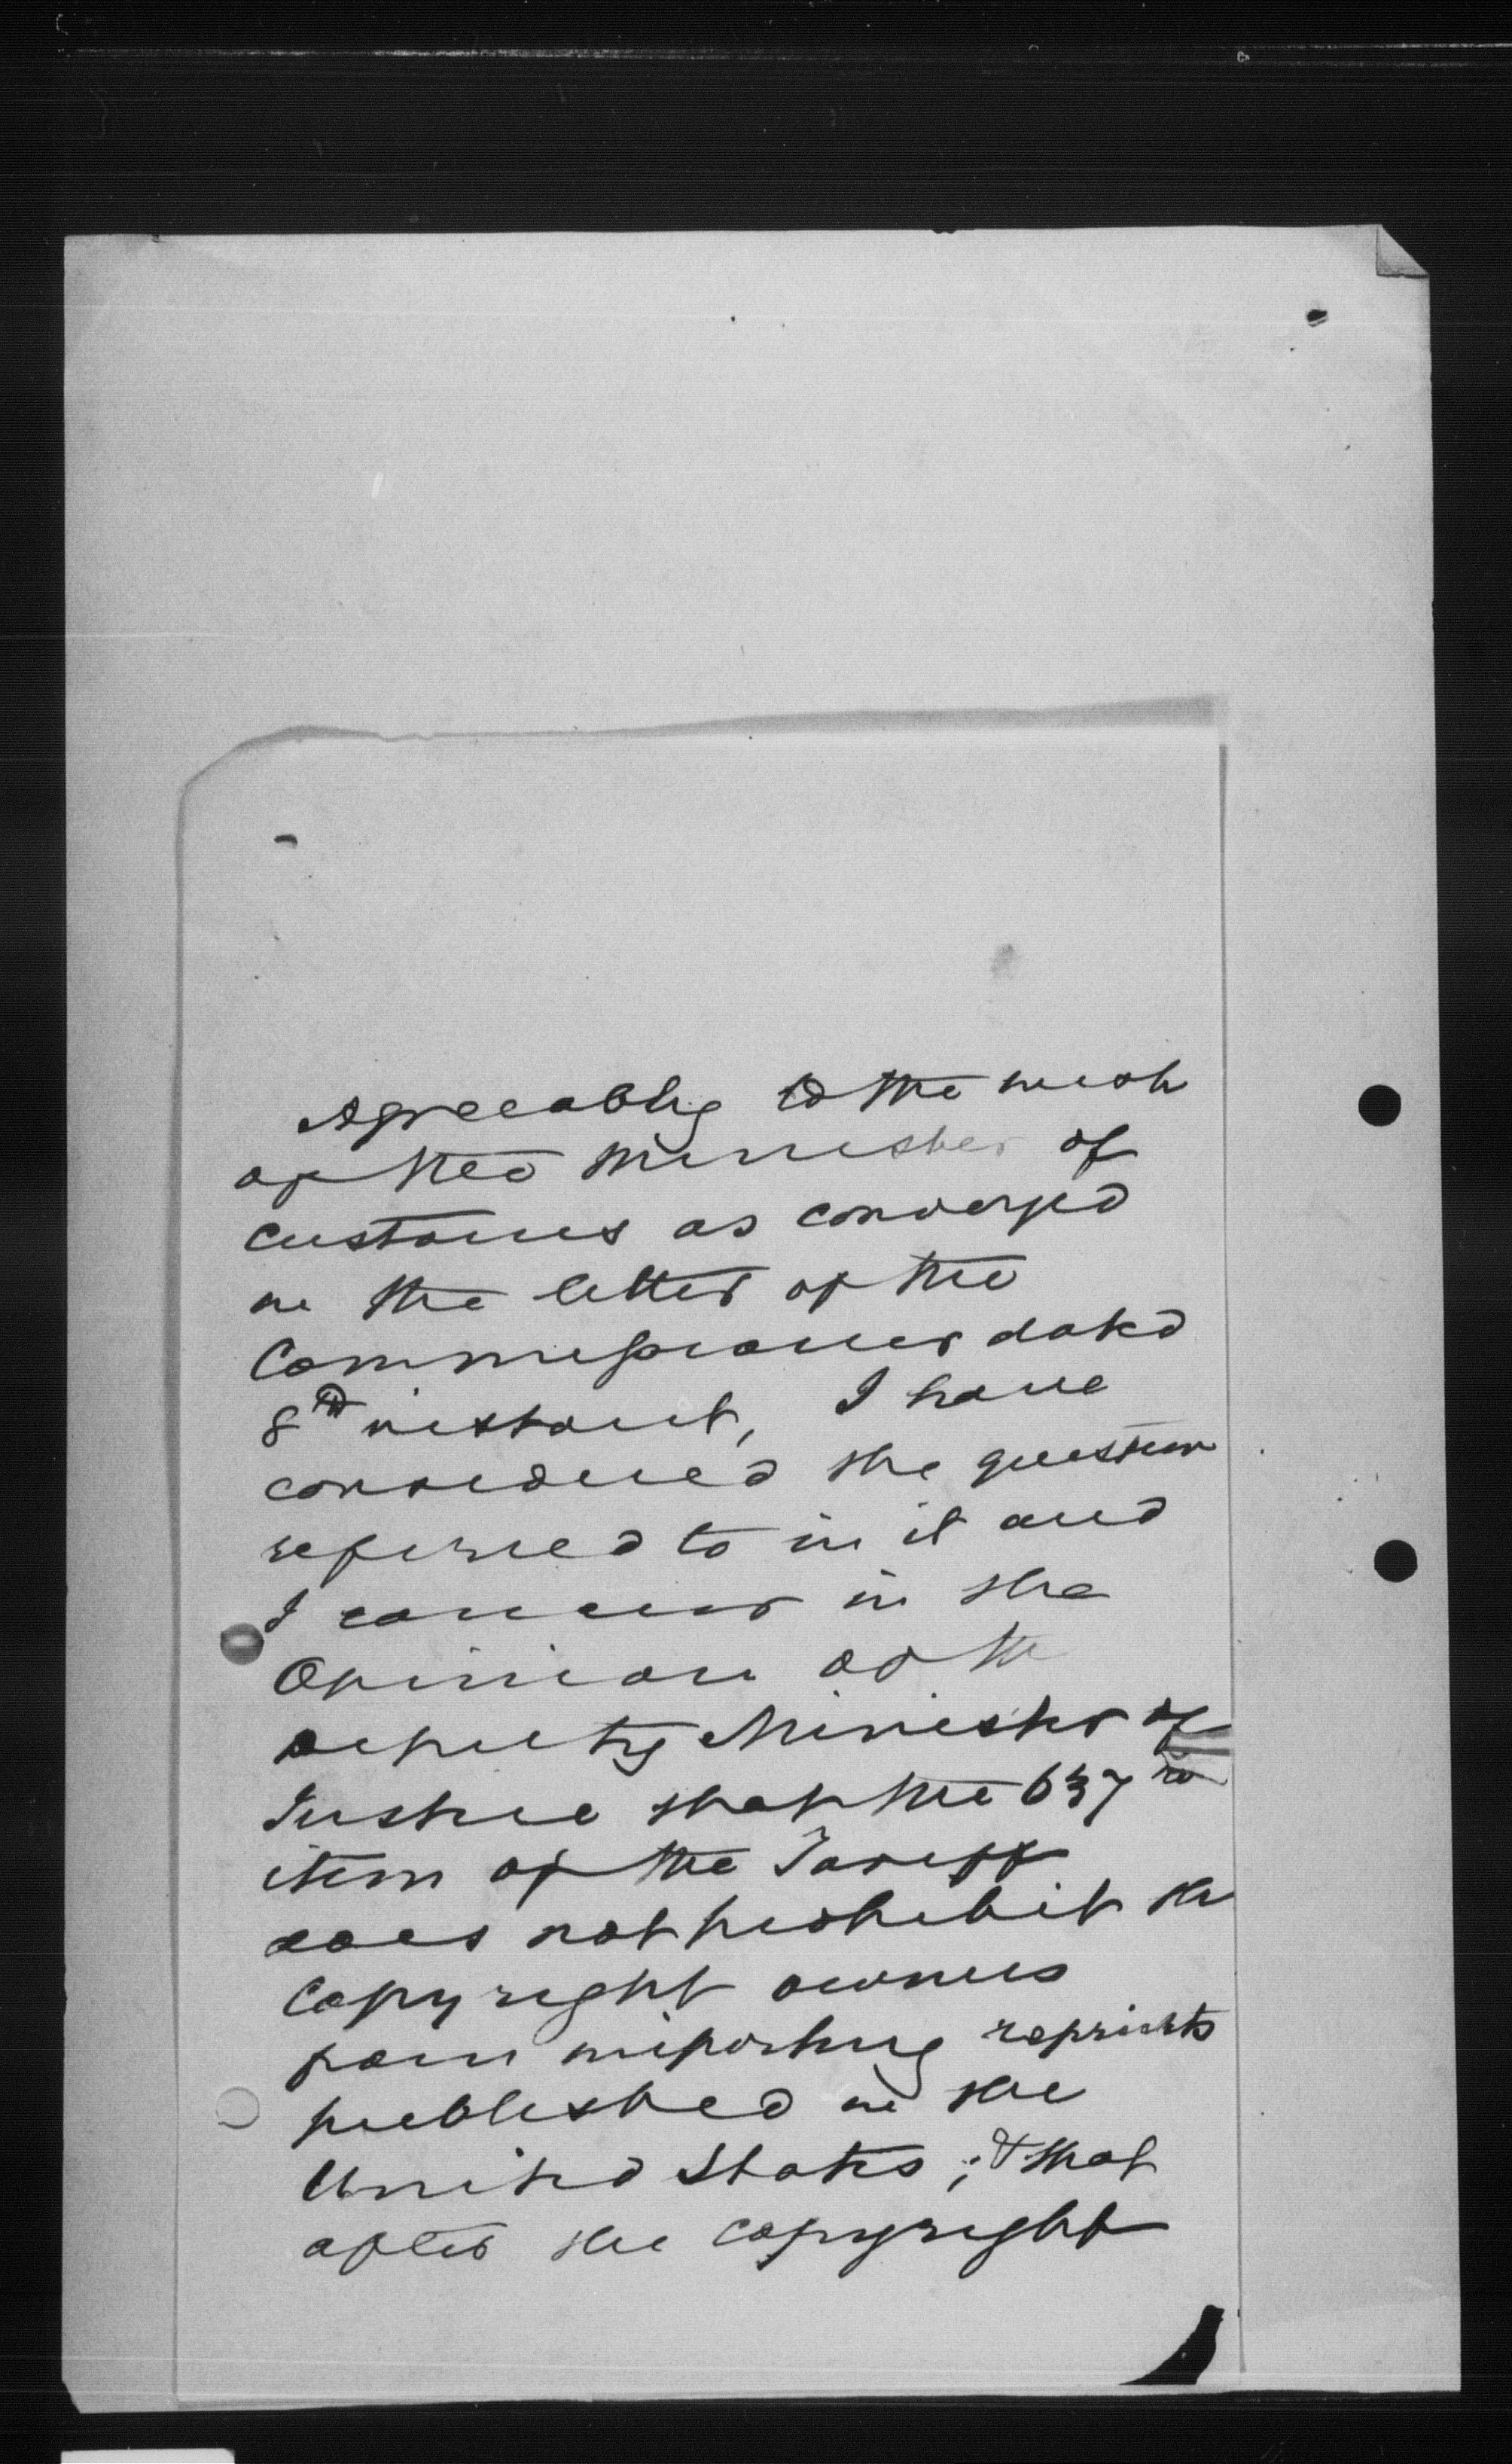 Agreeably to the wish
of the Minister of
Customs as conveyed
in the letter of the
Commissioner dated
8th instant, I have
considered the question
referred to in it and
I concur in the
Opinion of the
Deputy Minister of
Justice that the 637
item of the Tariff
does not prohibit the
Copyright owners
from importing reprints
published in the
United States; & that
after the copyright